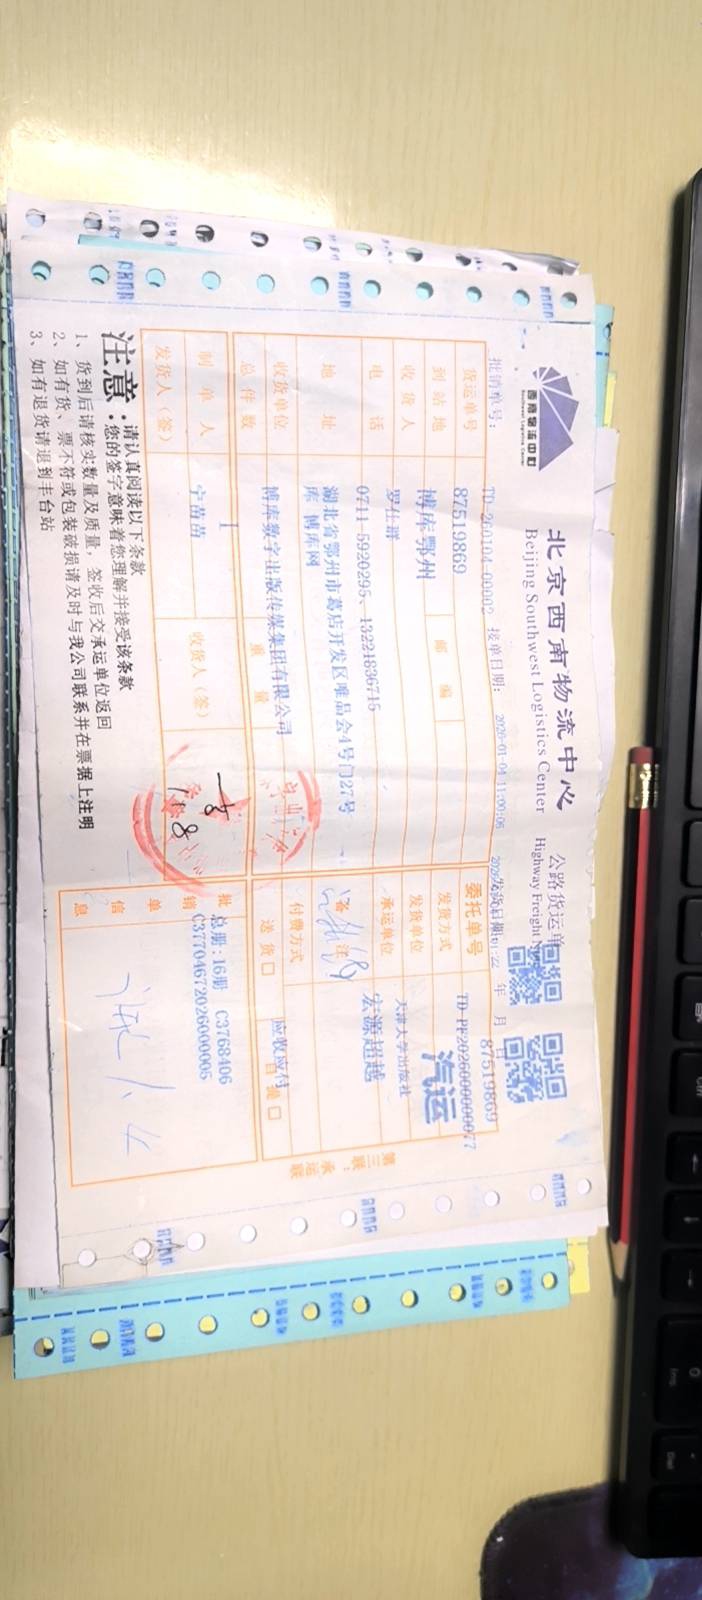 西南物流中心
Southwest Logistics Center
北京西南物流中心
Beijing Southwest Logistics Center
公路货运单
Highway Freight
批销单号: TD-260104-00002 接单日期: 2026-01-04 11:00:06 发货日期: 年 月 日
货运单号 87519869 委托单号 87519869
TD-PF20260000000077
到站地 博库鄂州 邮编 发货方式 汽运
收货人 罗仕群 发货单位 天津大学出版社
电话 0711-5920295、13221836715 承运单位 宏源超越
地址 湖北省鄂州市葛店开发区唯品会4号门27号
库 博库网
备注
收货单位 博库数字出版传媒集团有限公司 付费方式 应收应付
总件数 1 重量 送货口 自提口
制单人 宁苗苗 收货人(签)
发货人(签)
批销单信息 总册:16册 C3768406
C37704672026000005
第三联: 承运联
注意: 请认真阅读以下条款
您的签字意味着您理解并接受该条款
1、货到后请核实数量及质量, 签收后交承运单位返回
2、如有货、票不符或包装破损请及时与我公司联系并在票据上注明
3、如有退货请退到丰台站